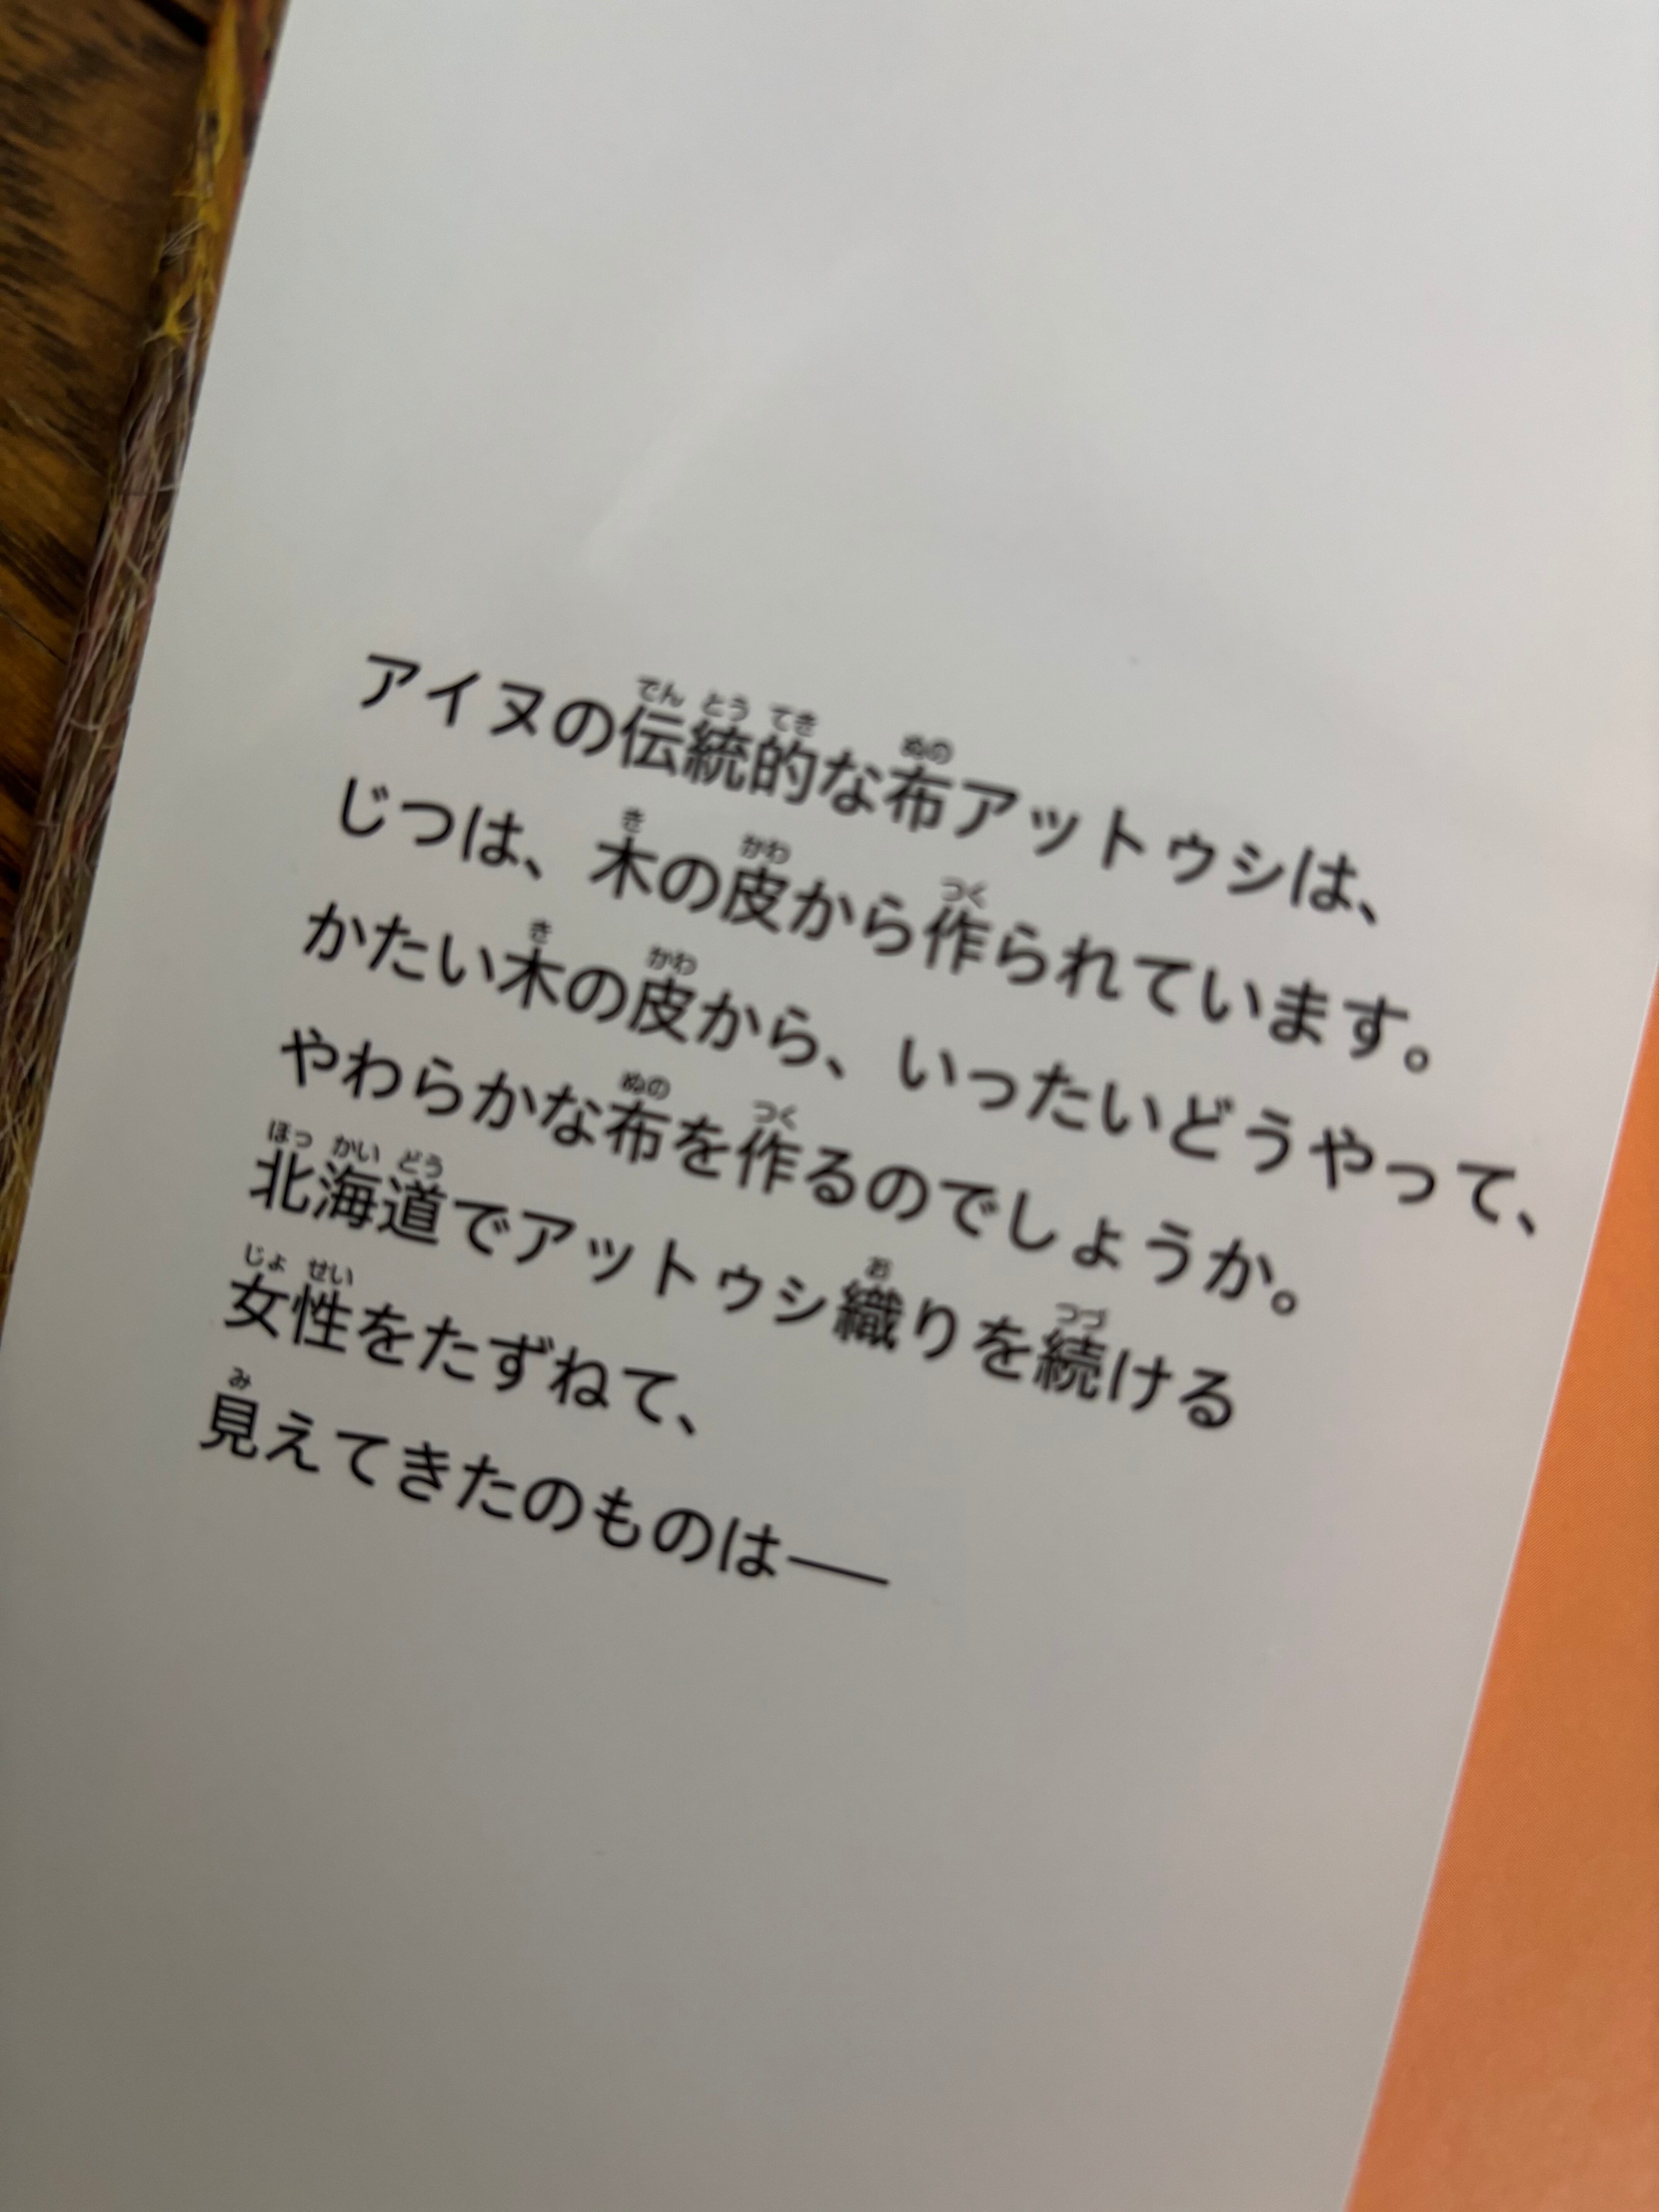 アイヌの伝統的な布アットゥシは、
じつは、木の皮から作られています。
かたい木の皮から、いったいどうやって、
やわらかな布を作るのでしょうか。
北海道でアットゥシ織りを続ける
女性をたずねて、
見えてきたのものは——